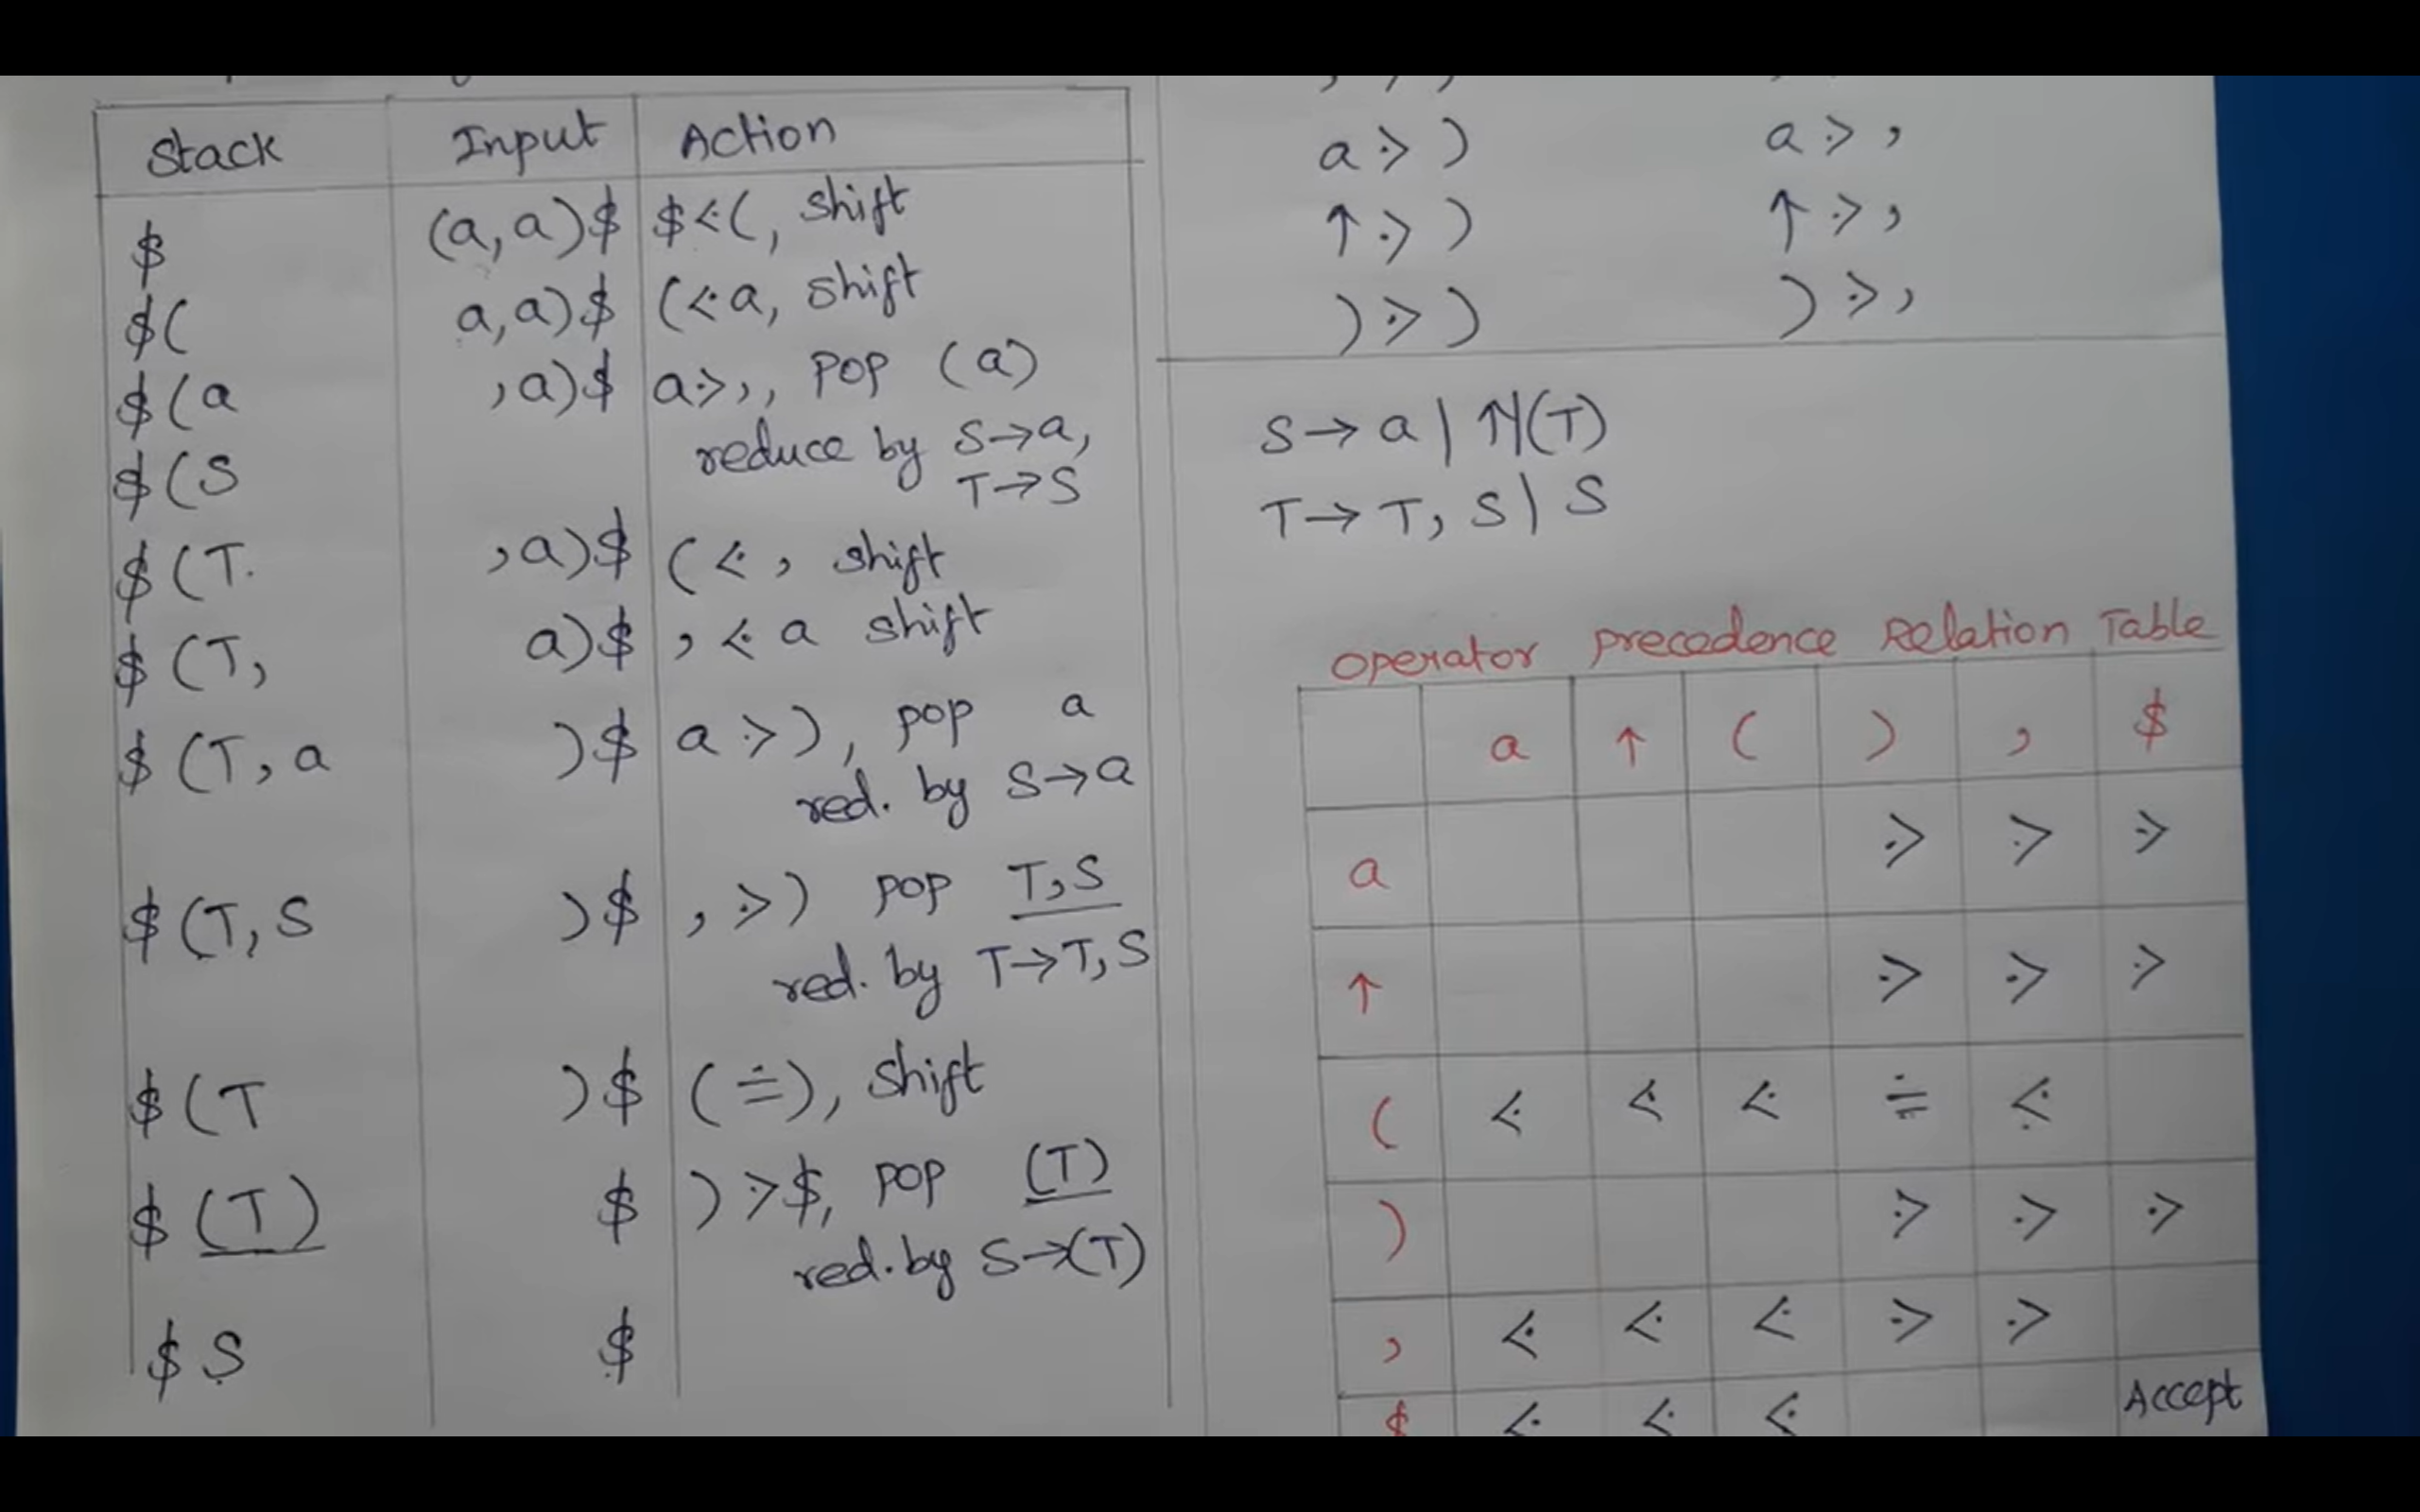 Stack Input Action
$ (a,a)$ $⋖(, shift
$( a,a)$ (⋖a, shift
$(a ,a)$ a⋗,, POP (a)
reduce by S→a,
$(S T→S
$(T. ,a)$ (⋖, shift
$(T, a)$ ,⋖a shift
$(T,a )$ a⋗), pop a
red. by S→a
$(T,S )$ ,⋗) pop T,S
red. by T→T,S
$(T )$ (≐), shift
$(T) $ )⋗$, pop (T)
red. by S→(T)
$S $
a⋗) a⋗,
↑⋗) ↑⋗,
)⋗) )⋗,
S→a|↑|(T)
T→T,S|S
operator precedence Relation Table
a ↑ ( ) , $
a ⋗ ⋗ ⋗
↑ ⋗ ⋗ ⋗
( ⋖ ⋖ ⋖ ≐ ⋖
) ⋗ ⋗ ⋗
, ⋖ ⋖ ⋖ ⋗ ⋗
$ ⋖ ⋖ ⋖ Accept